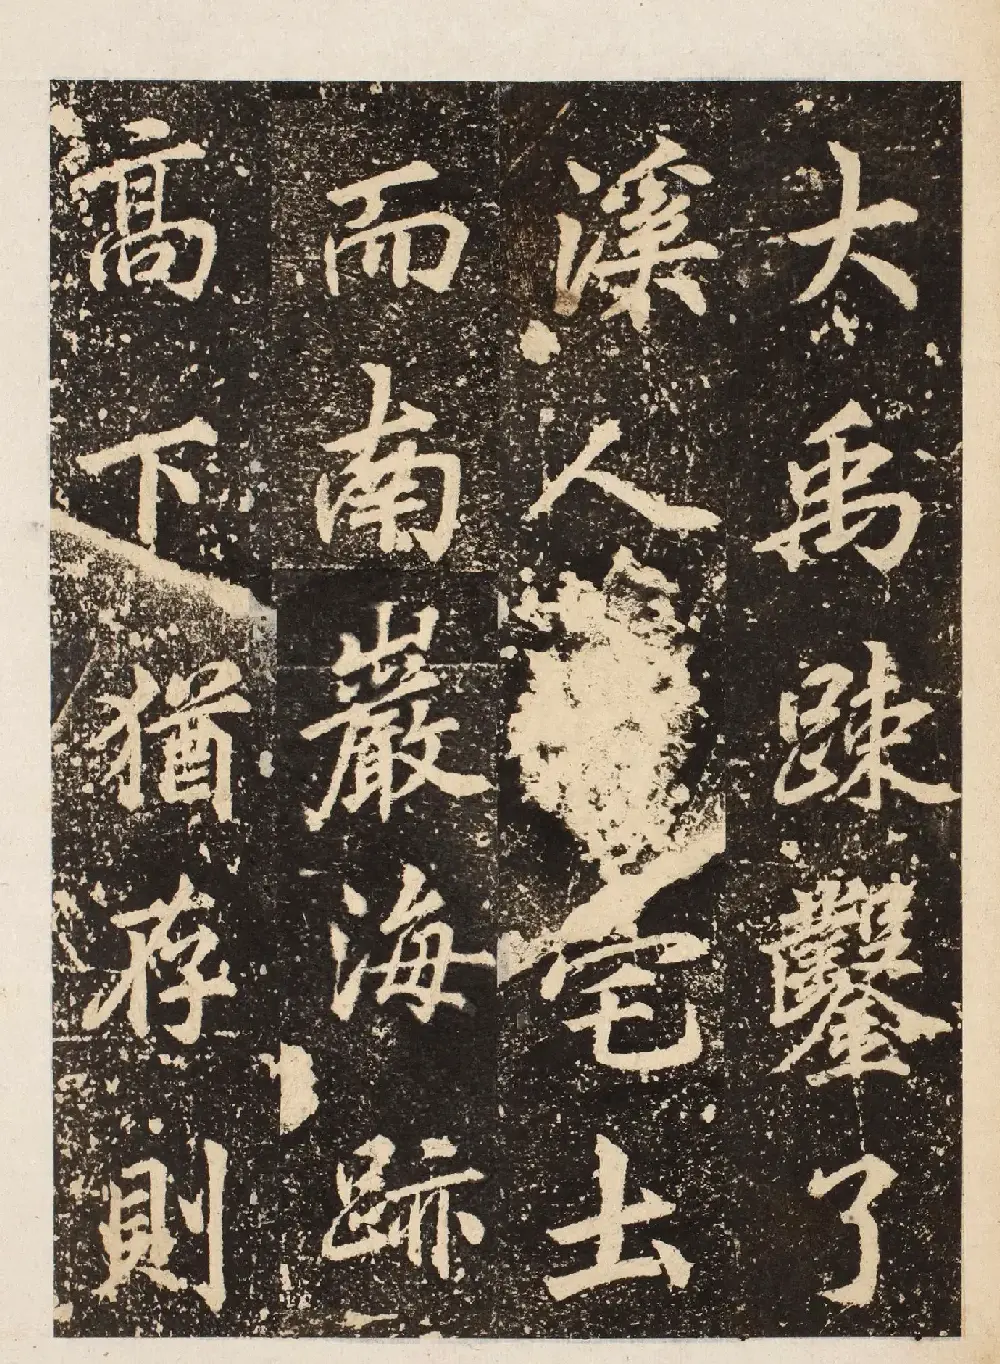 大禹疎鑿了
溪人宅土
而南巖海跡
高下猶存則